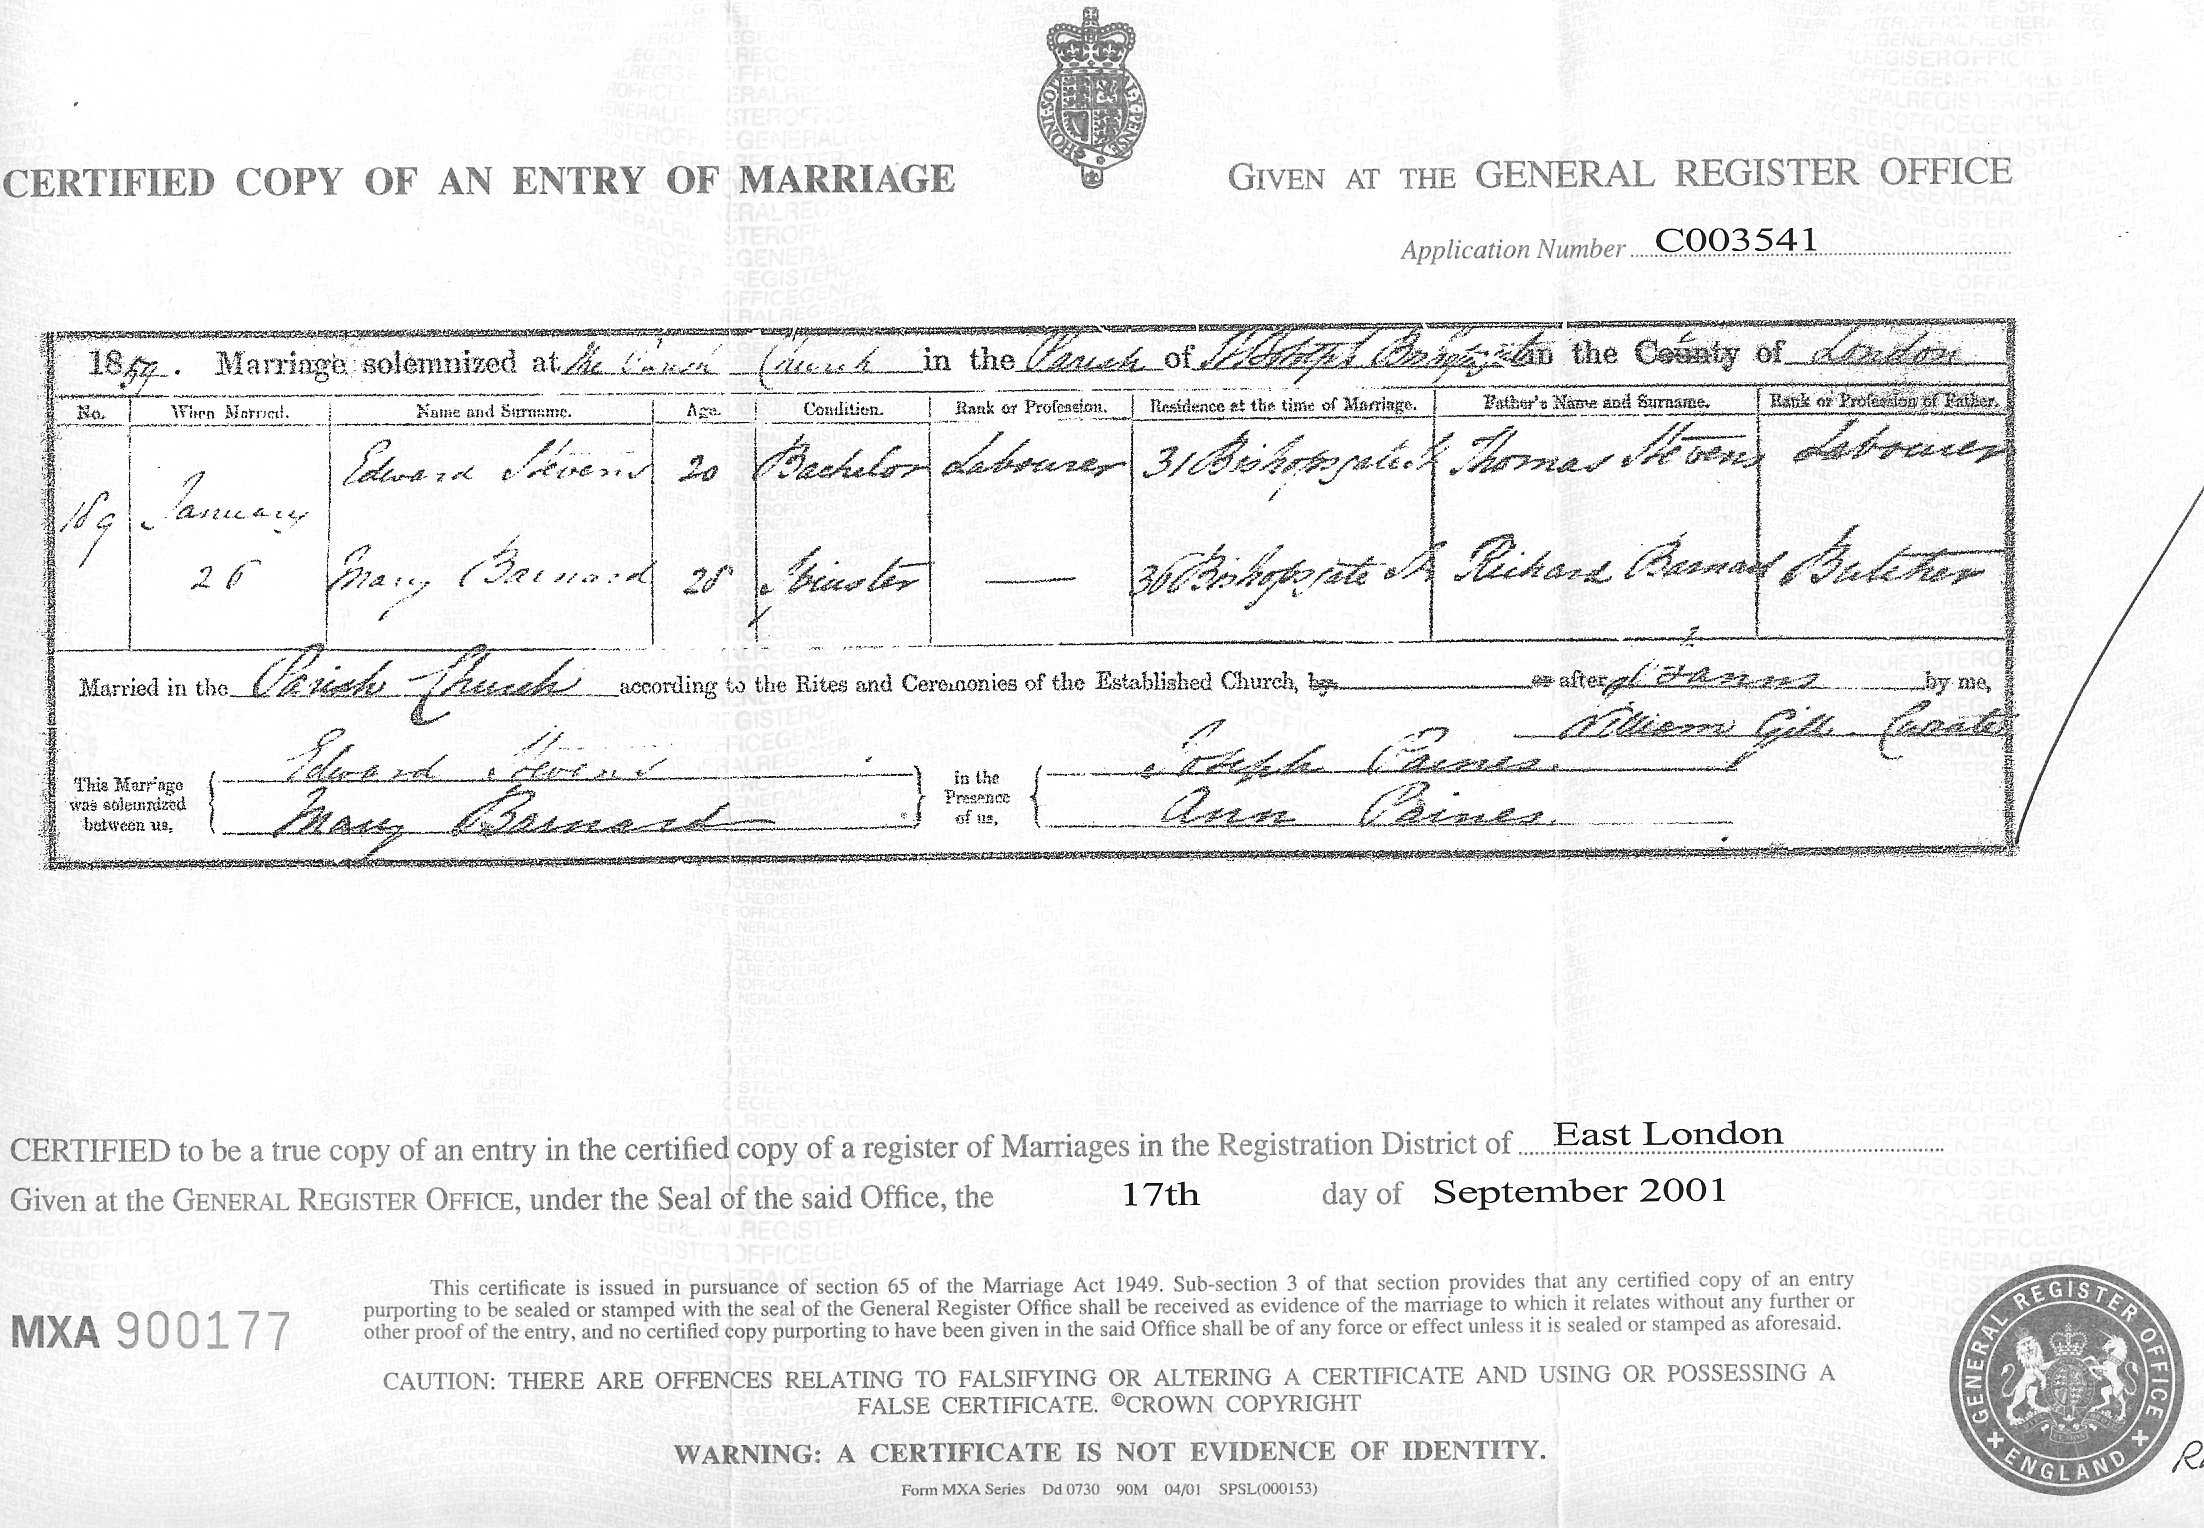 HONI SOIT QUI MAL Y PENSE
CERTIFIED COPY OF AN ENTRY OF MARRIAGE
GIVEN AT THE GENERAL REGISTER OFFICE
Application Number C003541
1859. Marriage solemnized at the Parish Church in the Parish of St Botolph Bishopsgate in the County of London
No. When Married. Name and Surname. Age. Condition. Rank or Profession. Residence at the time of Marriage. Father's Name and Surname. Rank or Profession of Father.
Edward Stevens 20 Bachelor Labourer 31 Bishopsgate St Thomas Stevens Labourer
189 January
26 Mary Barnard Spinster — 36 Bishopsgate St Richard Barnard Butcher
Married in the Parish Church according to the Rites and Ceremonies of the Established Church, by or after Banns by me,
William Gill Curate
This Marriage was solemnized between us,
Edward Stevens
Mary Barnard
in the Presence of us,
Joseph Paines.
Ann Paines.
CERTIFIED to be a true copy of an entry in the certified copy of a register of Marriages in the Registration District of East London
Given at the GENERAL REGISTER OFFICE, under the Seal of the said Office, the 17th day of September 2001
MXA 900177
This certificate is issued in pursuance of section 65 of the Marriage Act 1949. Sub-section 3 of that section provides that any certified copy of an entry
purporting to be sealed or stamped with the seal of the General Register Office shall be received as evidence of the marriage to which it relates without any further or
other proof of the entry, and no certified copy purporting to have been given in the said Office shall be of any force or effect unless it is sealed or stamped as aforesaid.
CAUTION: THERE ARE OFFENCES RELATING TO FALSIFYING OR ALTERING A CERTIFICATE AND USING OR POSSESSING A
FALSE CERTIFICATE. ©CROWN COPYRIGHT
WARNING: A CERTIFICATE IS NOT EVIDENCE OF IDENTITY.
Form MXA Series Dd 0730 90M 04/01 SPSL(000153)
GENERAL REGISTER OFFICE
ENGLAND